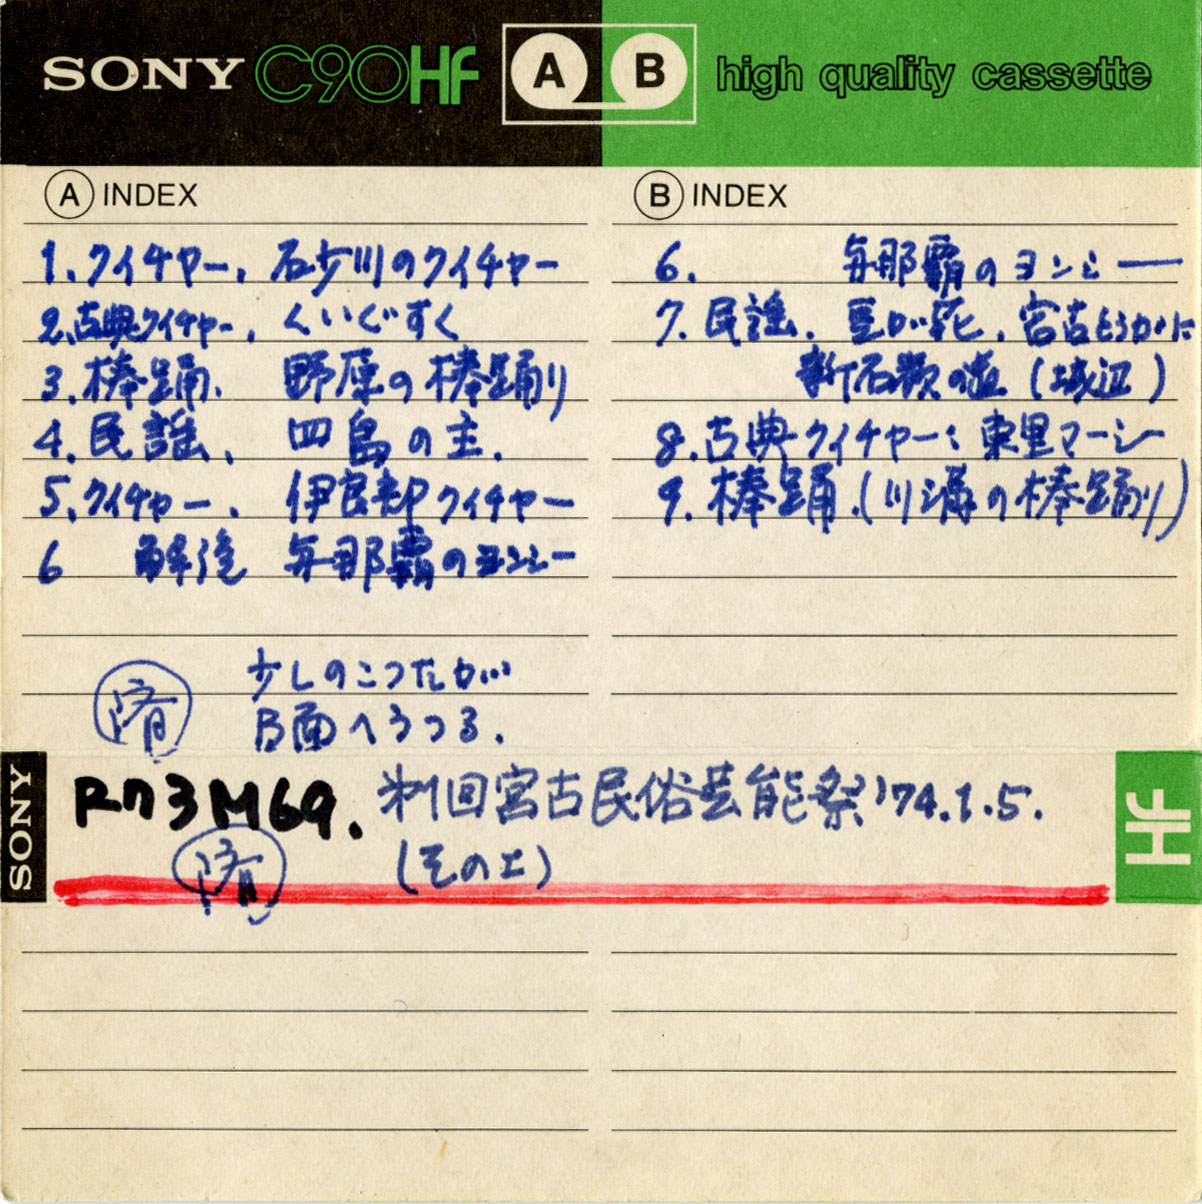 SONY C90HF A B high quality cassette
A INDEX
1. クイチャー、石少川のクイチャー
2. 古典クイチャー、くいぐすく
3. 棒踊、野原の棒踊り
4. 民謡、四島の主.
5. クイチャー、伊良部クイチャー
6 解説 与那覇のヨンシー
少しのこつたが…
B面へうつる.
済
B INDEX
6. 与那覇のヨンシー
7. 民謡. 豆が花、宮古とうがに
新石嶺の道(城辺)
8. 古典クイチャー: 東里マーシー
9. 棒踊.(川満の棒踊り)
SONY
R73M69. 第1回宮古民俗芸能祭 '74.1.5.
(その上)
済
HF